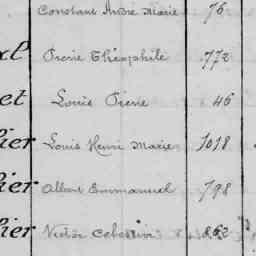 Constant André Marie 76
Pierre Théophile 772
et Louis Pierre 46
lier Louis Henri Marie 1018
lier Albert Emmanuel 798
lier Victor Célestin 862